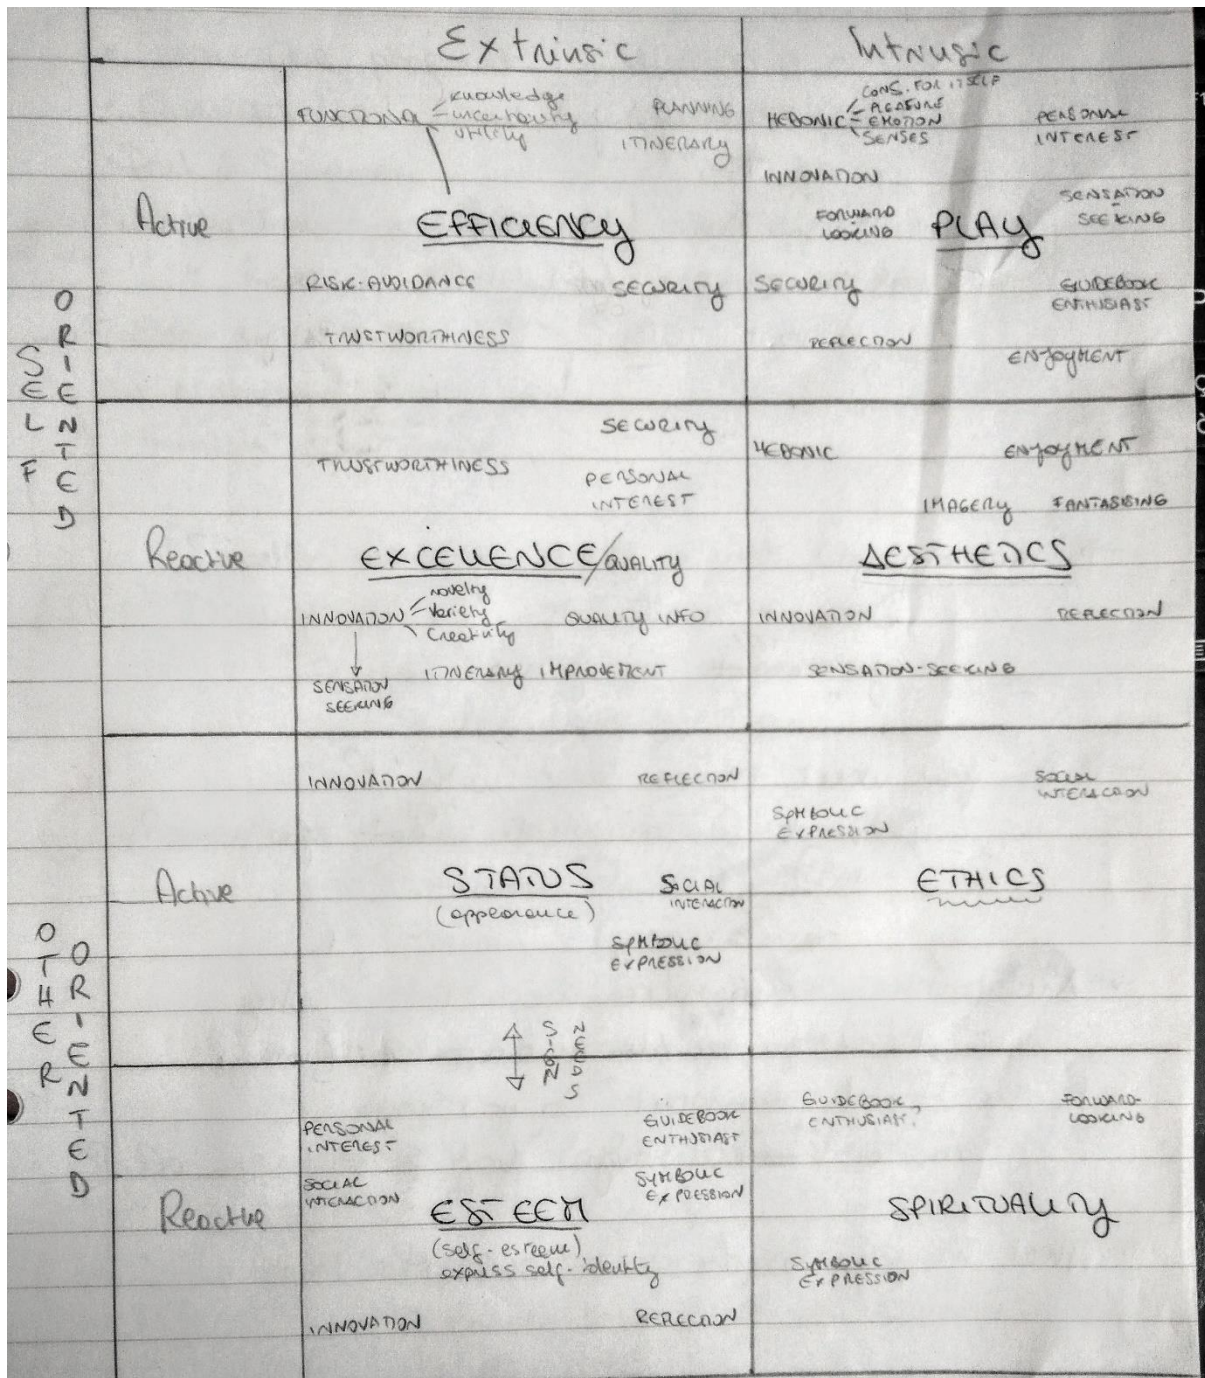 Extrinsic
Intrinsic
SELF ORIENTED
Active
FUNCTIONAL
knowledge
uncertainty
utility
PLANNING
ITINERARY
EFFICIENCY
RISK-AVOIDANCE
SECURITY
TRUSTWORTHINESS
CONS. FOR ITSELF
HEDONIC
PLEASURE
EMOTION
SENSES
PERSONAL
INTEREST
INNOVATION
SENSATION
SEEKING
FORWARD
LOOKING
PLAY
SECURITY
GUIDEBOOK
ENTHUSIAST
REFLECTION
ENJOYMENT
Reactive
SECURITY
TRUSTWORTHINESS
PERSONAL
INTEREST
EXCELLENCE/QUALITY
INNOVATION
novelty
Variety
Creativity
QUALITY INFO
ITINERARY IMPROVEMENT
SENSATION
SEEKING
HEDONIC
ENJOYMENT
IMAGERY FANTASISING
AESTHETICS
INNOVATION
REFLECTION
SENSATION-SEEKING
OTHER ORIENTED
Active
INNOVATION
REFLECTION
STATUS
(appearance)
SOCIAL
INTERACTION
SYMBOLIC
EXPRESSION
SOCIAL
INTERACTION
SYMBOLIC
EXPRESSION
ETHICS
Reactive
PERSONAL
INTEREST
GUIDEBOOK
ENTHUSIAST
SOCIAL
INTERACTION
SYMBOLIC
EXPRESSION
ESTEEM
(self-esteem)
express self-identity
INNOVATION
REFLECTION
GUIDEBOOK
ENTHUSIAST
FORWARD-
LOOKING
SPIRITUALITY
SYMBOLIC
EXPRESSION